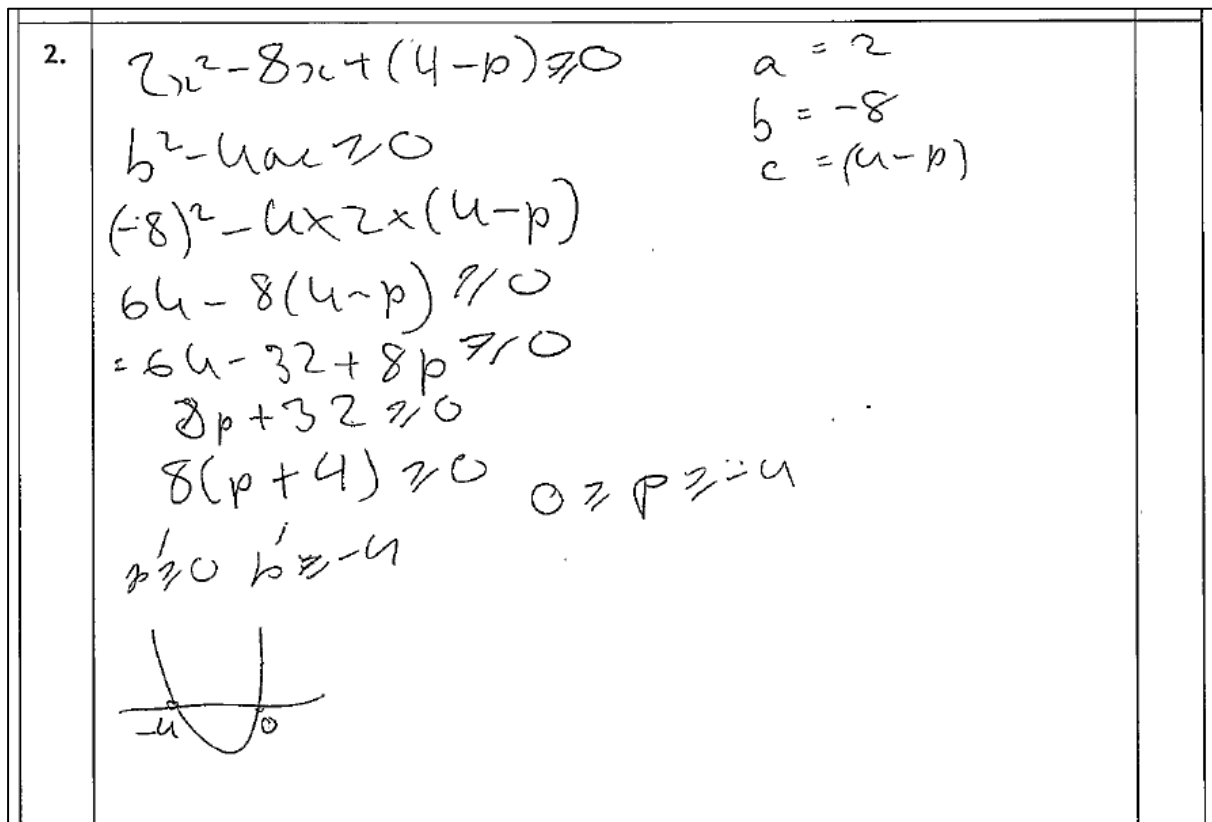 2.
2x² - 8x + (4 - p) ≥ 0
a = 2
b² - 4ac ≥ 0
b = -8
c = (4 - p)
(-8)² - 4 × 2 × (4 - p)
64 - 8(4 - p) ≥ 0
= 64 - 32 + 8p ≥ 0
8p + 32 ≥ 0
8(p + 4) ≥ 0 0 ≥ p ≥ -4
p ≥ 0 p ≥ -4
-4 0